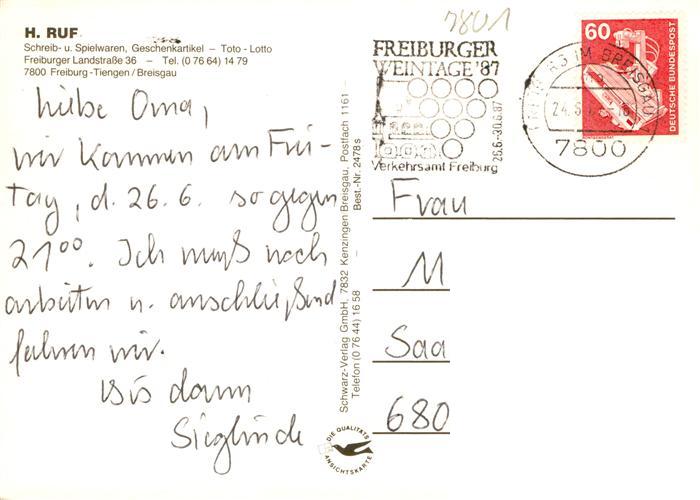 7801
H. RUF
Schreib- u. Spielwaren, Geschenkartikel – Toto - Lotto
Freiburger Landstraße 36 – Tel. (0 76 64) 14 79
7800 Freiburg-Tiengen / Breisgau
Liebe Oma,
wir kommen am Frei-
tag, d. 26.6. so gegen
21⁰⁰. Ich muß noch
arbeiten u. anschließend
fahren wir.
Bis dann
Sieglinde
Schwarz-Verlag GmbH, 7832 Kenzingen Breisgau, Postfach 1161
Telefon (0 76 44) 16 58 Best.-Nr. 2478 s
DIE QUALITÄTS
ANSICHTSKARTE
FREIBURGER
WEINTAGE '87
26.6.-30.6.87
Verkehrsamt Freiburg
IM BREISGAU
7800
60
DEUTSCHE BUNDESPOST
Frau
M
Saa
680